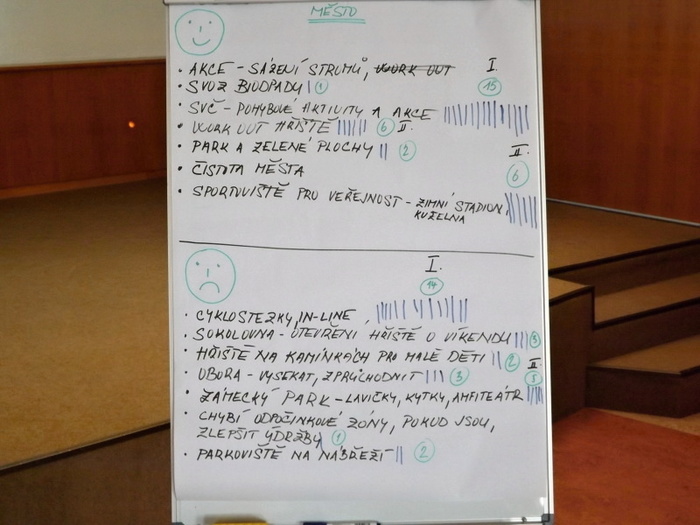 MĚSTO
• AKCE - SÁZENÍ STROMŮ, WORK OUT I.
• SVOZ BIOODPADU | 1 15
• SVČ - POHYBOVÉ AKTIVITY A AKCE
• WORK OUT HŘIŠTĚ 6 II.
• PARK A ZELENÉ PLOCHY 2 II.
• ČISTOTA MĚSTA 6
• SPORTOVIŠTĚ PRO VEŘEJNOST - ZIMNÍ STADION,
KUŽELNA
I.
14
• CYKLOSTEZKY, IN-LINE
• SOKOLOVNA - OTEVŘENÍ HŘIŠTĚ O VÍKENDU 3
• HŘIŠTĚ NA KAMÍNKÁCH PRO MALÉ DĚTI 2 II.
• OBORA - VYSEKAT, ZPRŮCHODNIT 3
• ZÁMECKÝ PARK - LAVIČKY, KYTKY, AMFITEÁTR
• CHYBÍ ODPOČINKOVÉ ZÓNY, POKUD JSOU,
ZLEPŠIT ÚDRŽBU 1
• PARKOVIŠTĚ NA NÁBŘEŽÍ 2